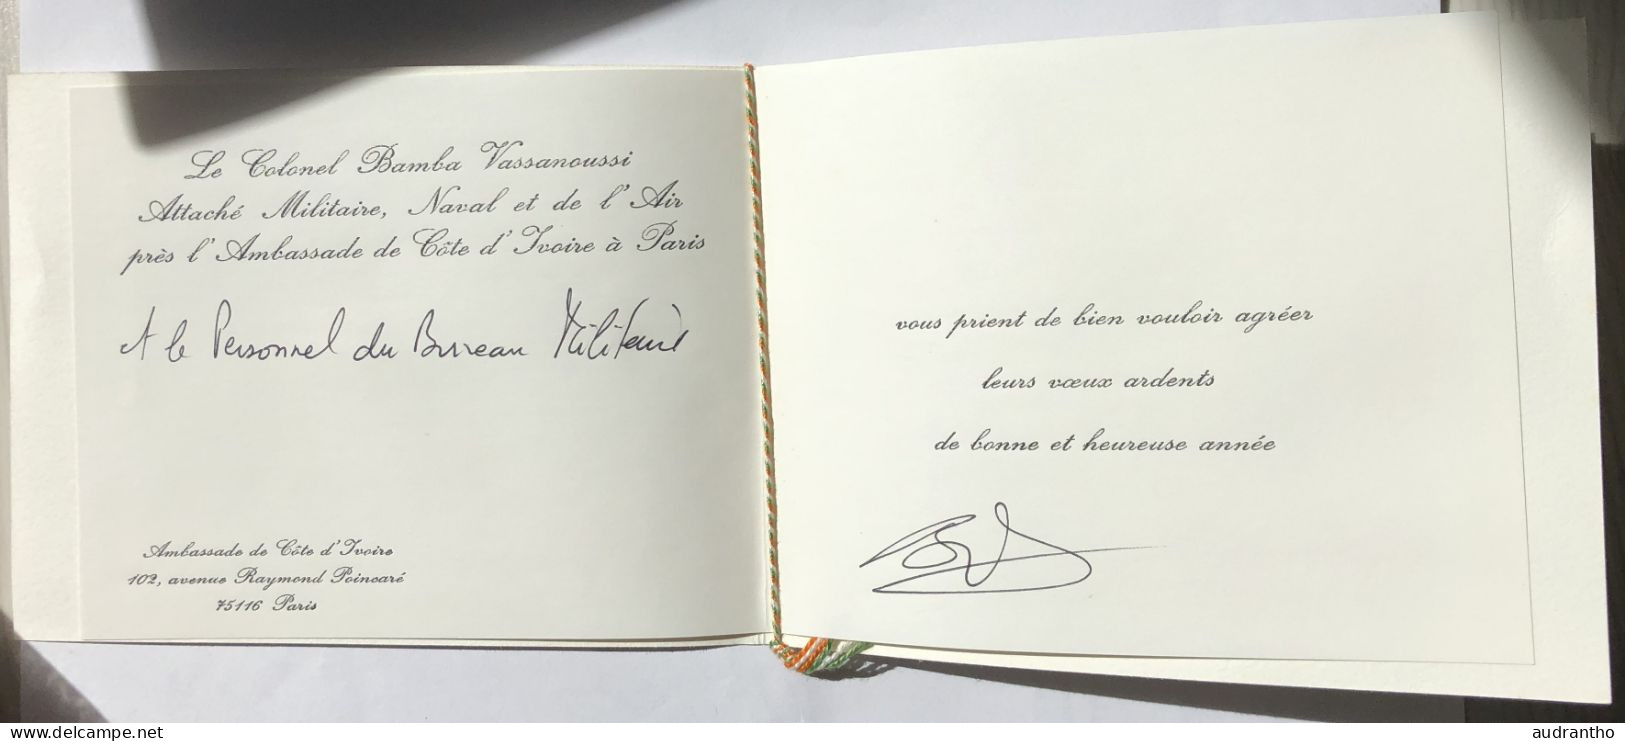 Le Colonel Bamba Vassanoussi
Attaché Militaire, Naval et de l'Air
près l'Ambassade de Côte d'Ivoire à Paris
et le Personnel du Bureau Militaire
Ambassade de Côte d'Ivoire
102, avenue Raymond Poincaré
75116 Paris
vous prient de bien vouloir agréer
leurs vœux ardents
de bonne et heureuse année
delcampe.net
audrantho